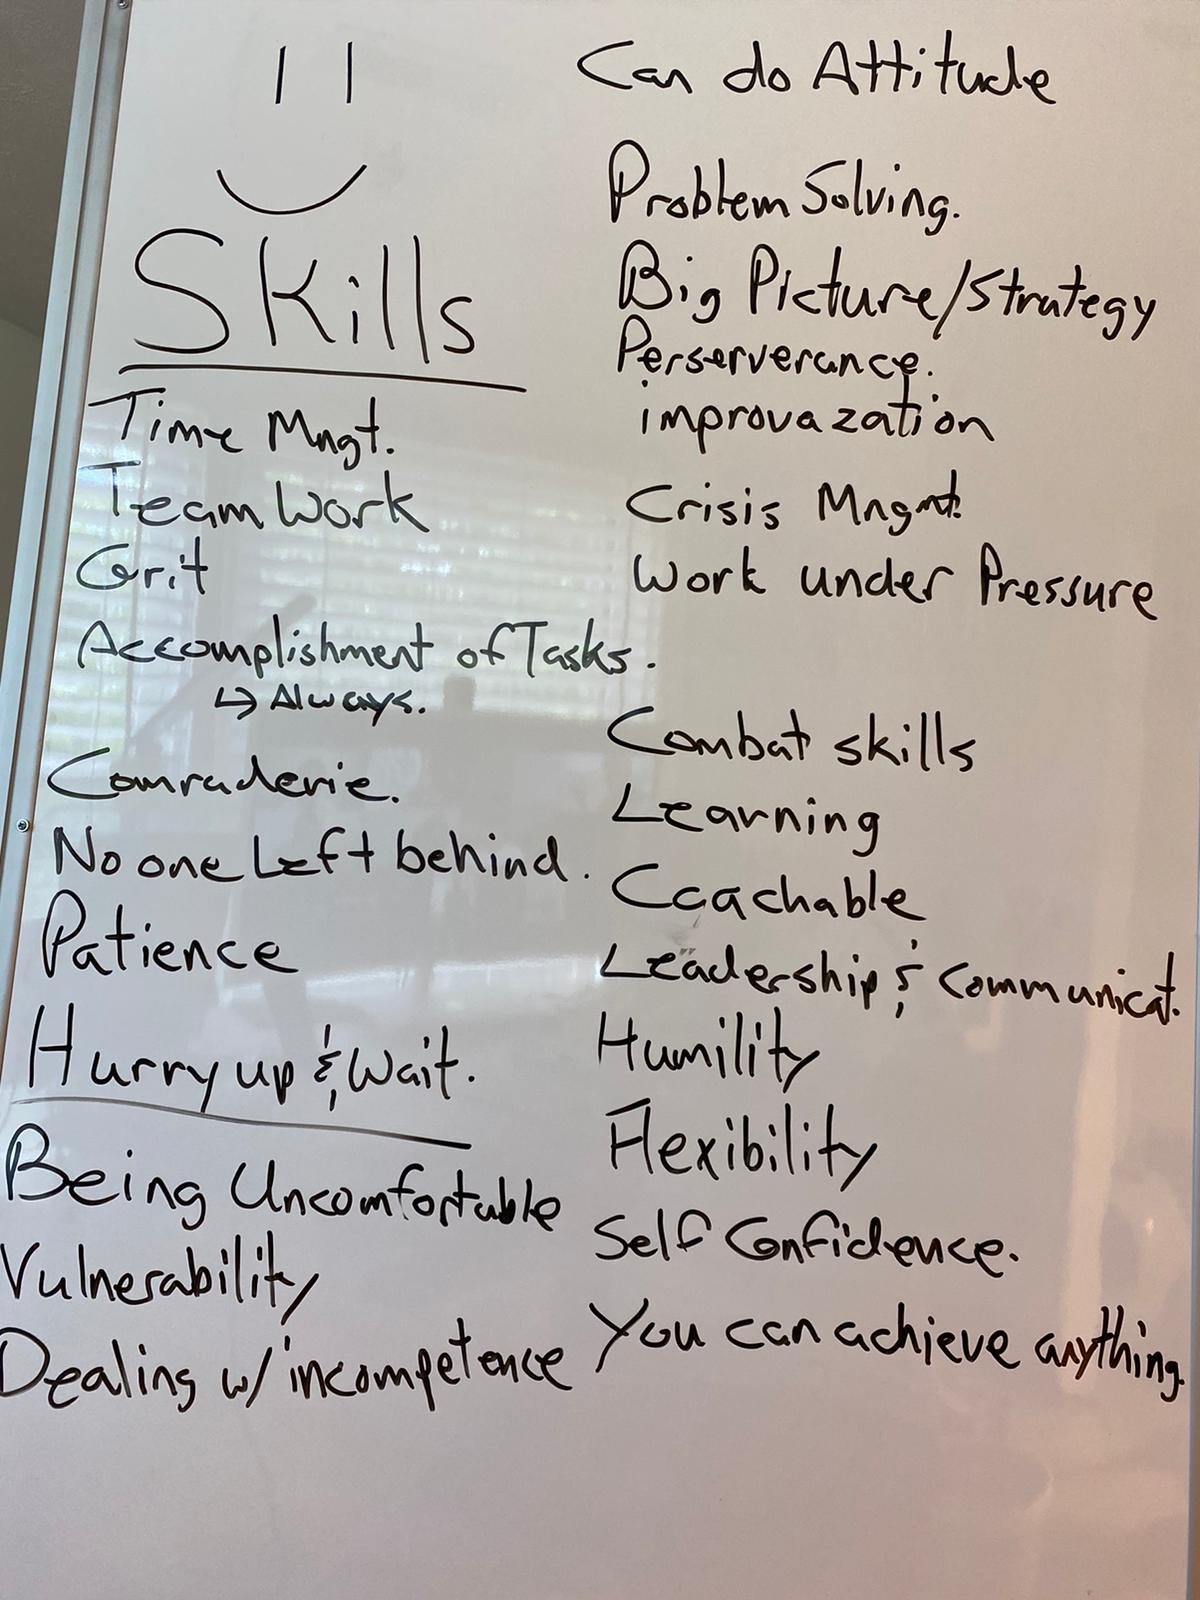 Skills
Time Mngt.
Team Work
Grit
Accomplishment of Tasks.
↳ Always.
Comraderie.
No one Left behind.
Patience
Hurry up & Wait.
Being Uncomfortable
Vulnerability
Dealing w/ incompetence
Can do Attitude
Problem Solving.
Big Picture/Strategy
Perserverance.
improvazation
Crisis Mngmt.
Work under Pressure
Combat skills
Learning
Coachable
Leadership & Communicat.
Humility
Flexibility
Self Confidence.
You can achieve anything.